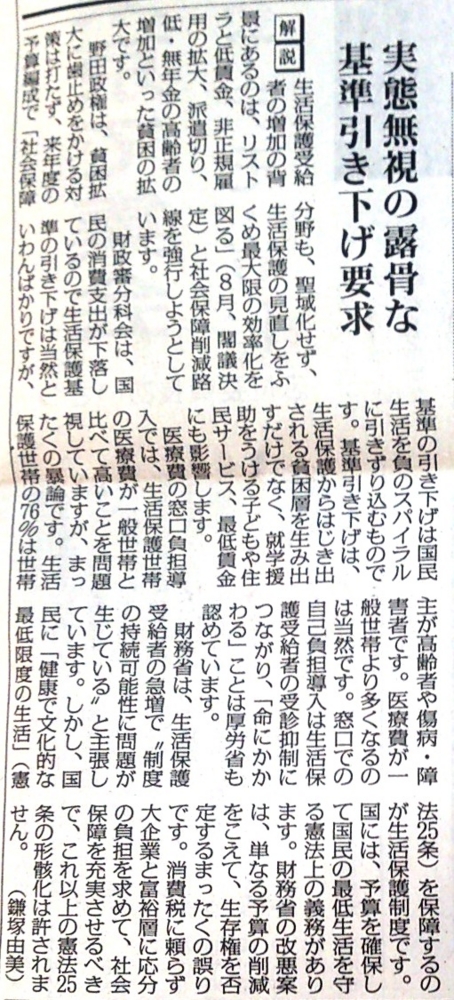 実態無視の露骨な
基準引き下げ要求
解説
生活保護受給
者の増加の背
景にあるのは、リスト
ラと低賃金、非正規雇
用の拡大、派遣切り、
低・無年金の高齢者の
増加といった貧困の拡
大です。
野田政権は、貧困拡
大に歯止めをかける対
策は打たず、来年度の
予算編成で「社会保障
分野も、聖域化せず、
生活保護の見直しをふ
くめ最大限の効率化を
図る」（8月、閣議決
定）と社会保障削減路
線を強行しようとして
います。
財政審分科会は、国
民の消費支出が下落し
ているので生活保護基
準の引き下げは当然と
いわんばかりですが、
基準の引き下げは国民
生活を負のスパイラル
に引きずり込むもので
す。基準引き下げは、
生活保護からはじき出
される貧困層を生み出
すだけでなく、就学援
助をうける子どもや住
民サービス、最低賃金
にも影響します。
医療費の窓口負担導
入では、生活保護世帯
の医療費が一般世帯と
比べて高いことを問題
視していますが、まっ
たくの暴論です。生活
保護世帯の76％は世帯
主が高齢者や傷病・障
害者です。医療費が一
般世帯より多くなるの
は当然です。窓口での
自己負担導入は生活保
護受給者の受診抑制に
つながり、「命にかか
わる」ことは厚労省も
認めています。
財務省は、生活保護
受給者の急増で〝制度
の持続可能性に問題が
生じている〟と主張し
ています。しかし、国
民に「健康で文化的な
最低限度の生活」（憲
法25条）を保障するの
が生活保護制度です。
国には、予算を確保し
て国民の最低生活を守
る憲法上の義務があり
ます。財務省の改悪案
は、単なる予算の削減
をこえて、生存権を否
定するまったくの誤り
です。消費税に頼らず
大企業と富裕層に応分
の負担を求めて、社会
保障を充実させるべき
で、これ以上の憲法25
条の形骸化は許されま
せん。
（鎌塚由美）